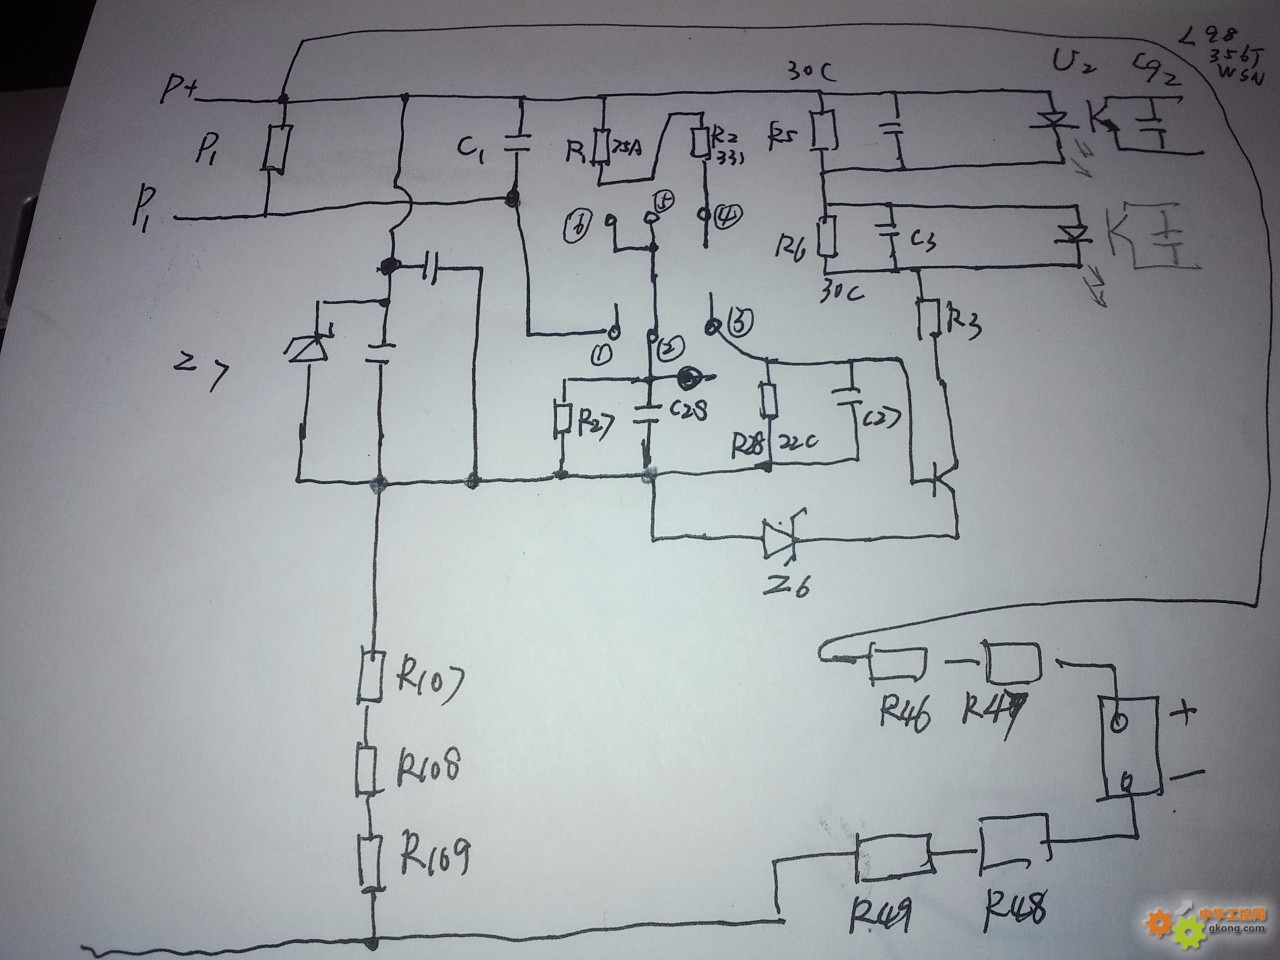 L98
356T
WSN
P+
P1
P1
C1
R1
75A
R2
331
30C
R5
U2
C92
⑥
⑤
④
R6
C3
30C
R3
Z7
①
②
③
R27
C28
R28
22C
C27
Z6
R107
R108
R109
R46
R47
+
−
R49
R48
中华工控网
gkong.com